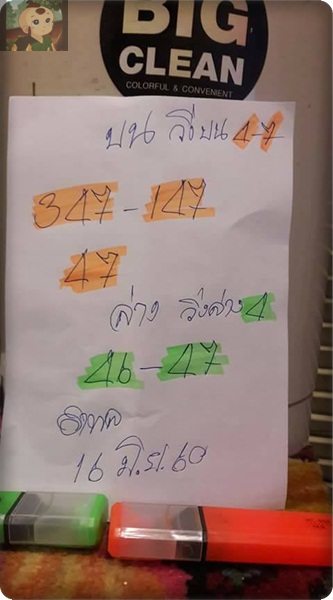 BIG
CLEAN
COLORFUL & CONVENIENT
บน วิ่งบน 4-7
347 - 147
47
ล่าง วิ่งล่าง 4
46 - 47
16 มิ.ย. 60